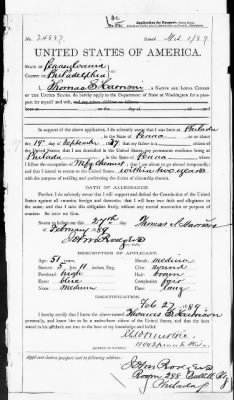 Application for Passport
No. 24887. Issued Mch 1/89
UNITED STATES OF AMERICA.
STATE OF Pennsylvania
COUNTY OF Philadelphia
I, Thomas S. Harrison, A NATIVE AND LOYAL CITIZEN
OF THE UNITED STATES, do hereby apply to the Department of State at Washington for a pass-
port for myself and wife, and my minor children as follows:
In support of the above application, I do solemnly swear that I was born at Philada
in the State of Penna on the
19th day of September 1837 that I am a
United States; that I am domiciled in the United States, my permanent residence being at
Philada in the State of Penna where I
follow the occupation of Mfg Chemist; that I am about to go abroad temporarily,
and that I intend to return to the United States within two years
with the purpose of residing and performing the duties of citizenship therein.
OATH OF ALLEGIANCE.
Further, I do solemnly swear that I will support and defend the Constitution of the United States
against all enemies, foreign and domestic; that I will bear true faith and allegiance to
the same; and that I take this obligation freely, without any mental reservation or purpose of
evasion: SO HELP ME GOD.
Sworn to before me, this 27th day
of February 1889 Thomas S. Harrison
Notary Public.
DESCRIPTION OF APPLICANT.
Age: 51 years. Mouth: medium
Stature: 5 feet 11 inches, Eng. Chin: round
Forehead: high Hair: brown
Eyes: blue Complexion: fair
Nose: medium Face: long
IDENTIFICATION.
Feb 27 1889
I hereby certify that I know the above-named Thomas S. Harrison
personally, and know him to be a native-born citizen of the United States, and that the facts
stated in his affidavit are true to the best of my knowledge and belief.
Applicant desires passport sent to following address:
Room 258
Philada